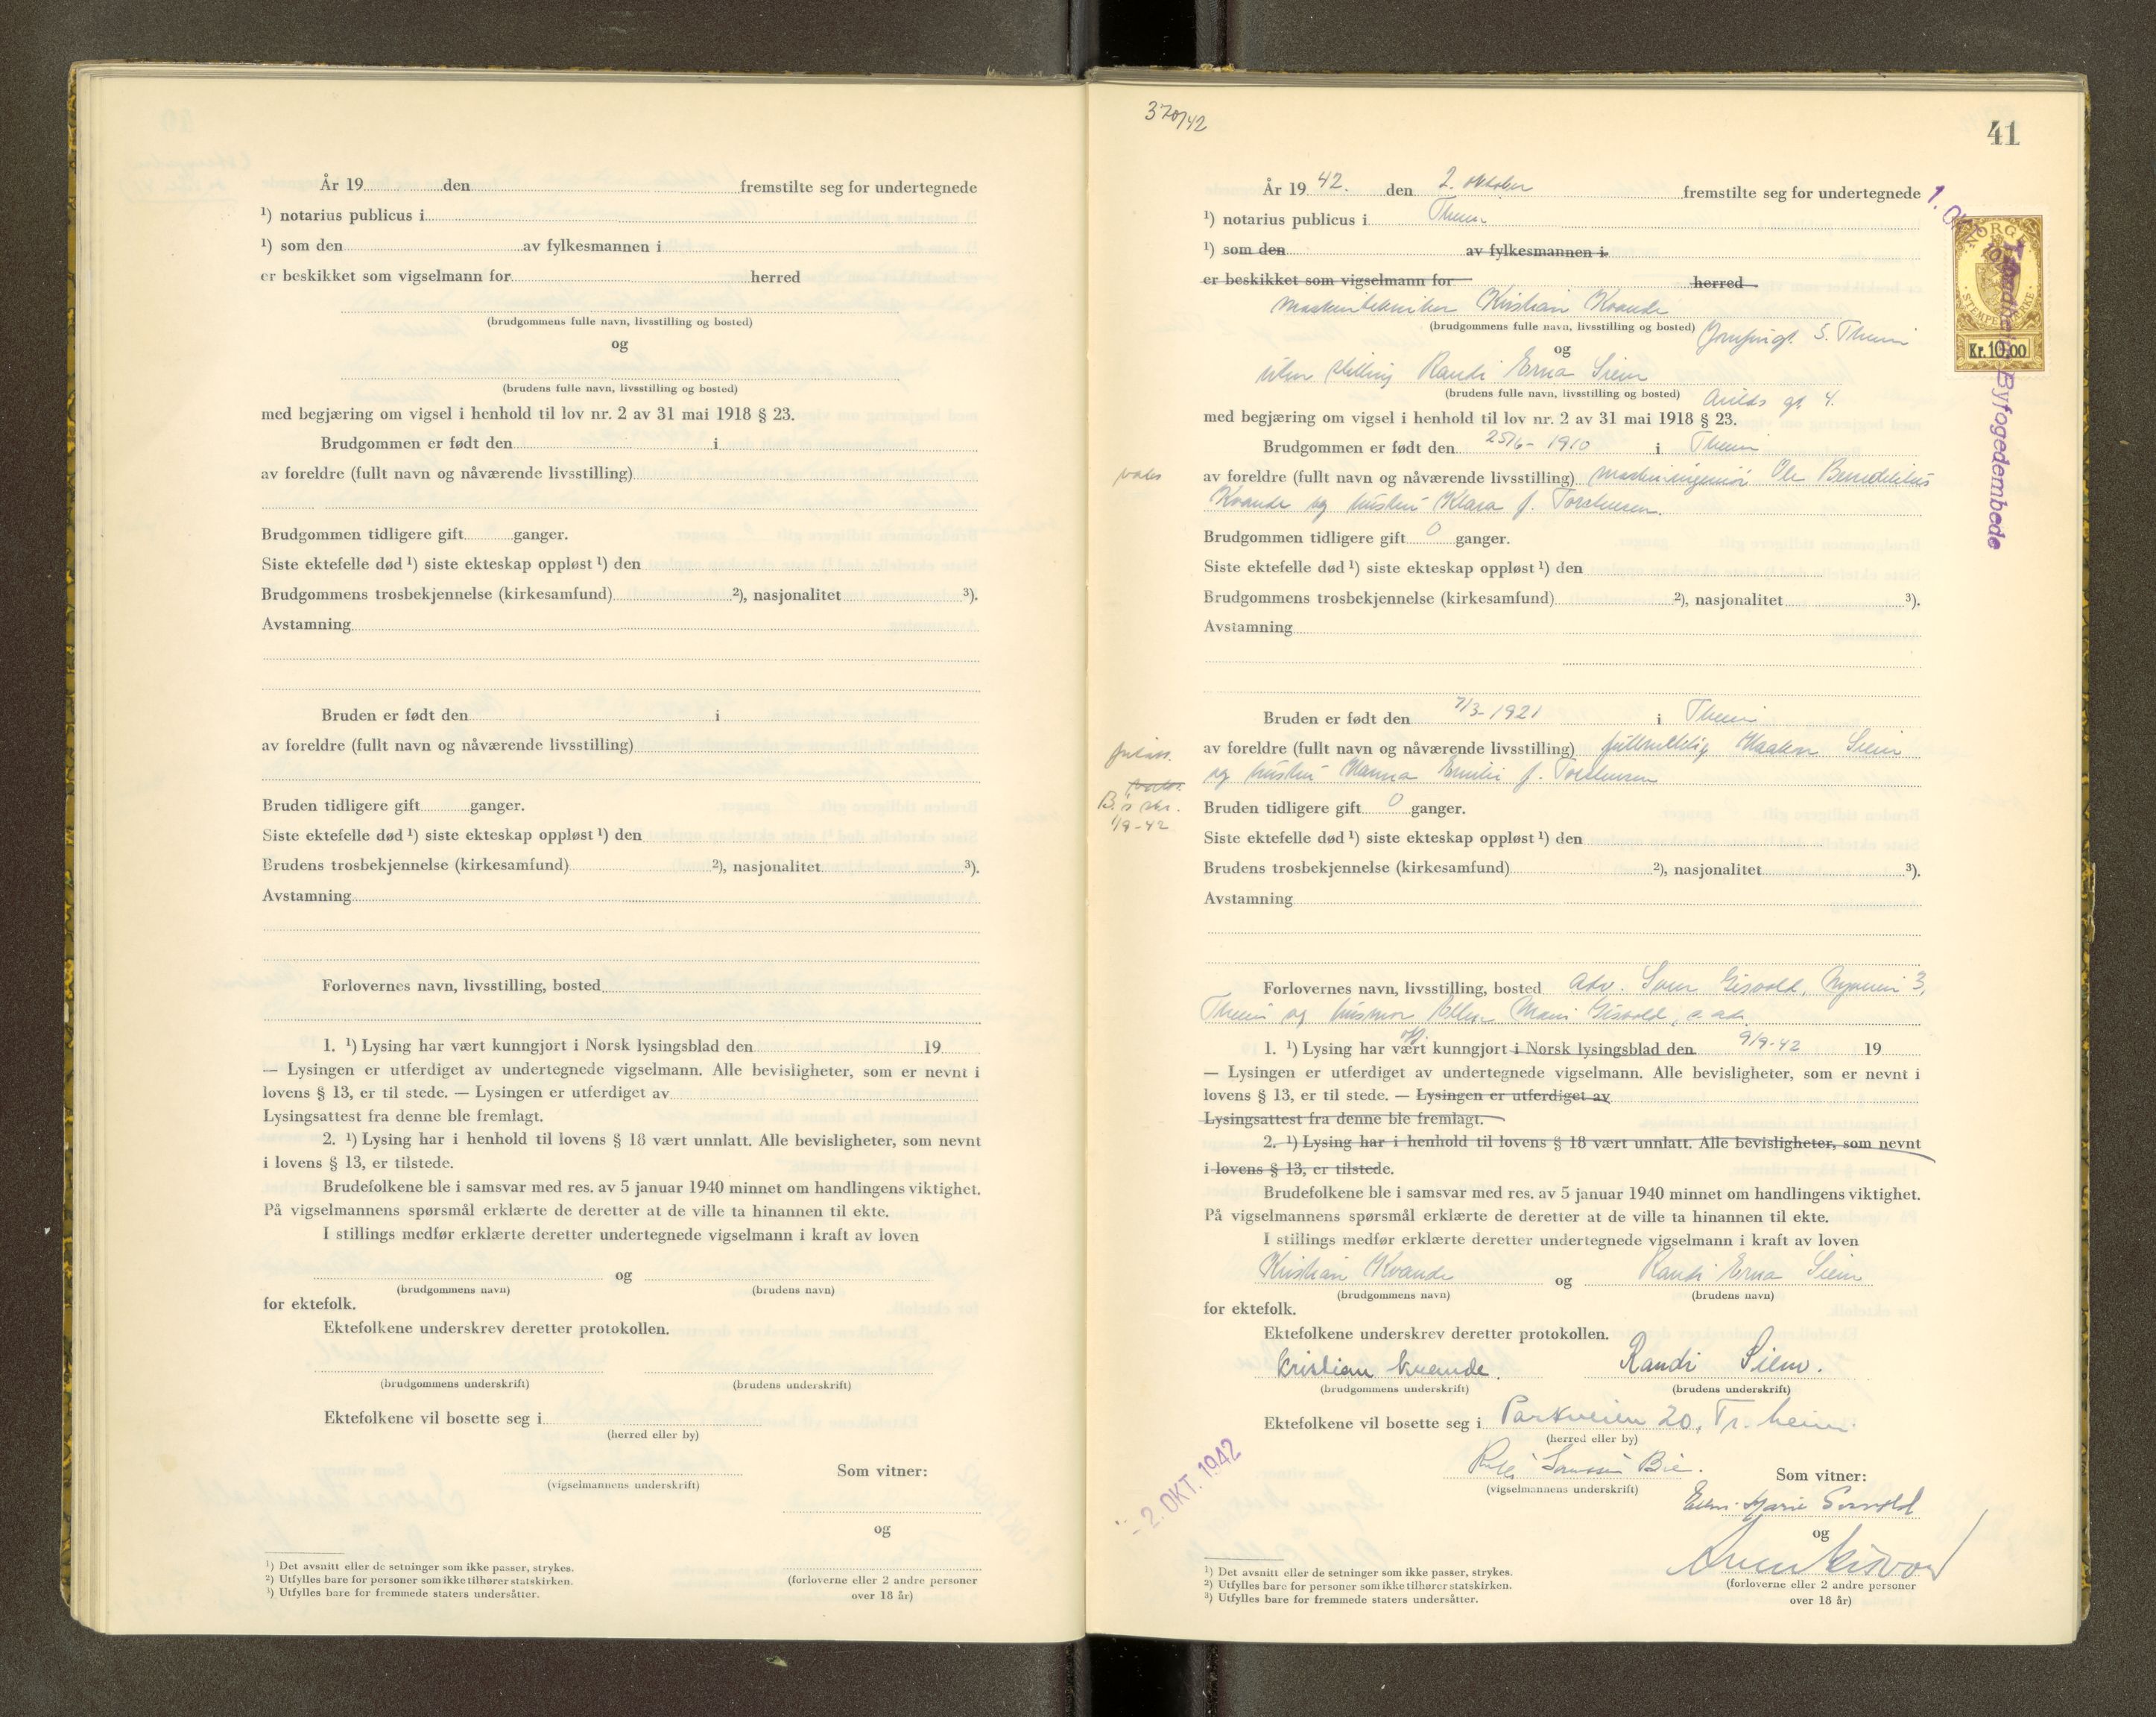 År 19 den fremstilte seg for undertegnede
¹) notarius publicus i
¹) som den av fylkesmannen i
er beskikket som vigselmann for herred
(brudgommens fulle navn, livsstilling og bosted)
og
(brudens fulle navn, livsstilling og bosted)
med begjæring om vigsel i henhold til lov nr. 2 av 31 mai 1918 § 23.
Brudgommen er født den i
av foreldre (fullt navn og nåværende livsstilling)
Brudgommen tidligere gift ganger.
Siste ektefelle død ¹) siste ekteskap oppløst ¹) den
Brudgommens trosbekjennelse (kirkesamfund) ²), nasjonalitet ³).
Avstamning
Bruden er født den i
av foreldre (fullt navn og nåværende livsstilling)
Bruden tidligere gift ganger.
Siste ektefelle død ¹) siste ekteskap oppløst ¹) den
Brudens trosbekjennelse (kirkesamfund) ²), nasjonalitet ³).
Avstamning
Forlovernes navn, livsstilling, bosted
1. ¹) Lysing har vært kunngjort i Norsk lysingsblad den 19
— Lysingen er utferdiget av undertegnede vigselmann. Alle bevisligheter, som er nevnt i
lovens § 13, er til stede. — Lysingen er utferdiget av
Lysingsattest fra denne ble fremlagt.
2. ¹) Lysing har i henhold til lovens § 18 vært unnlatt. Alle bevisligheter, som nevnt
i lovens § 13, er tilstede.
Brudefolkene ble i samsvar med res. av 5 januar 1940 minnet om handlingens viktighet.
På vigselmannens spørsmål erklærte de deretter at de ville ta hinannen til ekte.
I stillings medfør erklærte deretter undertegnede vigselmann i kraft av loven
og
(brudgommens navn) (brudens navn)
for ektefolk.
Ektefolkene underskrev deretter protokollen.
(brudgommens underskrift) (brudens underskrift)
Ektefolkene vil bosette seg i
(herred eller by)
Som vitner:
(vigselmannens underskrift)
og
¹) Det avsnitt eller de setninger som ikke passer, strykes.
²) Utfylles bare for personer som ikke tilhører statskirken.
³) Utfylles bare for fremmede staters undersåtter.
(forloverne eller 2 andre personer
over 18 år)
370/42
41
År 19 42. den 2. oktober fremstilte seg for undertegnede
¹) notarius publicus i Theim
¹) som den av fylkesmannen i
er beskikket som vigselmann for herred
Maskintekniker Kristian Kvande
(brudgommens fulle navn, livsstilling og bosted) 5. Theim
og
uten stilling Randi Erna Siem
(brudens fulle navn, livsstilling og bosted) Arilds gt. 4.
med begjæring om vigsel i henhold til lov nr. 2 av 31 mai 1918 § 23.
Brudgommen er født den 25/6- 1910 i Theim
av foreldre (fullt navn og nåværende livsstilling) maskiningeniør Ole Benediktus
Kvande og hustru Klara f. Torstensen.
Brudgommen tidligere gift 0 ganger.
Siste ektefelle død ¹) siste ekteskap oppløst ¹) den
Brudgommens trosbekjennelse (kirkesamfund) ²), nasjonalitet ³).
Avstamning
Bruden er født den 7/3- 1921 i Theim
av foreldre (fullt navn og nåværende livsstilling) fullmektig Haakon Siem
og hustru Hanna Emilie f. Torstensen
1/9-42
Bruden tidligere gift 0 ganger.
Siste ektefelle død ¹) siste ekteskap oppløst ¹) den
Brudens trosbekjennelse (kirkesamfund) ²), nasjonalitet ³).
Avstamning
Forlovernes navn, livsstilling, bosted Adv. Sven Gisvold, 3,
Theim og husmor Ellen Marie Gisvold, s. adr.
1. ¹) Lysing har vært kunngjort i Norsk lysingsblad den 9/9-42 19
— Lysingen er utferdiget av undertegnede vigselmann. Alle bevisligheter, som er nevnt i
lovens § 13, er til stede. — Lysingen er utferdiget av
Lysingsattest fra denne ble fremlagt.
2. ¹) Lysing har i henhold til lovens § 18 vært unnlatt. Alle bevisligheter, som nevnt
i lovens § 13, er tilstede.
Brudefolkene ble i samsvar med res. av 5 januar 1940 minnet om handlingens viktighet.
På vigselmannens spørsmål erklærte de deretter at de ville ta hinannen til ekte.
I stillings medfør erklærte deretter undertegnede vigselmann i kraft av loven
Kristian Kvande og Randi Erna Siem
(brudgommens navn) (brudens navn)
for ektefolk.
Ektefolkene underskrev deretter protokollen.
Kristian Kvande. Randi Siem.
(brudgommens underskrift) (brudens underskrift)
Ektefolkene vil bosette seg i Parkveien 20, Tr. heim.
(herred eller by)
Som vitner:
(vigselmannens underskrift)
og
- 2. OKT. 1942
¹) Det avsnitt eller de setninger som ikke passer, strykes.
²) Utfylles bare for personer som ikke tilhører statskirken.
³) Utfylles bare for fremmede staters undersåtter.
(forloverne eller 2 andre personer
over 18 år)
NORGE
STEMPELMERKE
Kr. 10.00
Byfogedembede